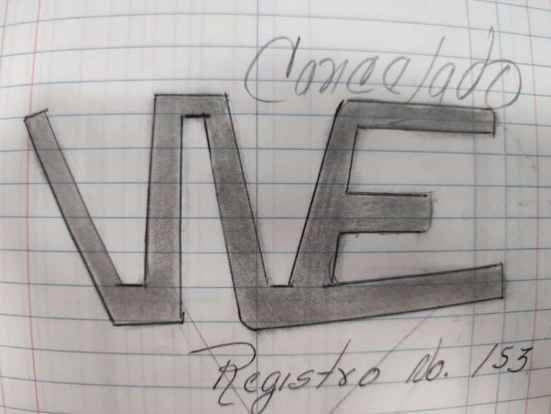 Cancelado
WE
Registro No. 153